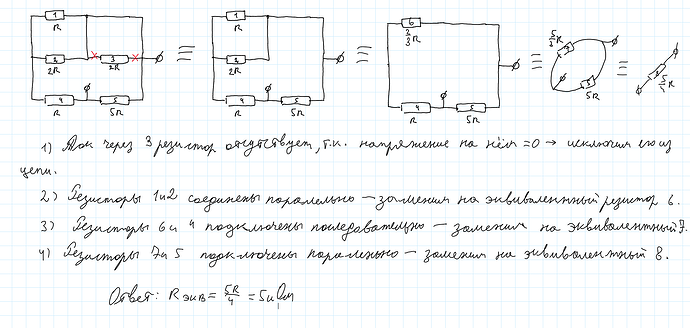 1 R 2 2R 3 2R 4 R 5 5R ≡ 1 R 2 2R 4 R 5 5R ≡ 6 2/3 R 4 R 5 5R ≡ 5/3 R 7 5 5R ≡ 8 5/4 R
1) Ток через 3 резистор отсутствует, т.к. напряжение на нём =0 → исключим его из
цепи.
2) Резисторы 1 и 2 соединены паралельно – заменим на эквивалентный резистор 6.
3) Резисторы 6 и 4 подключены последовательно – заменим на эквивалентный 7.
4) Резисторы 7 и 5 подключены паралельно – заменим на эквивалентный 8.
Ответ: R экв = 5R/4 = 5 кОм